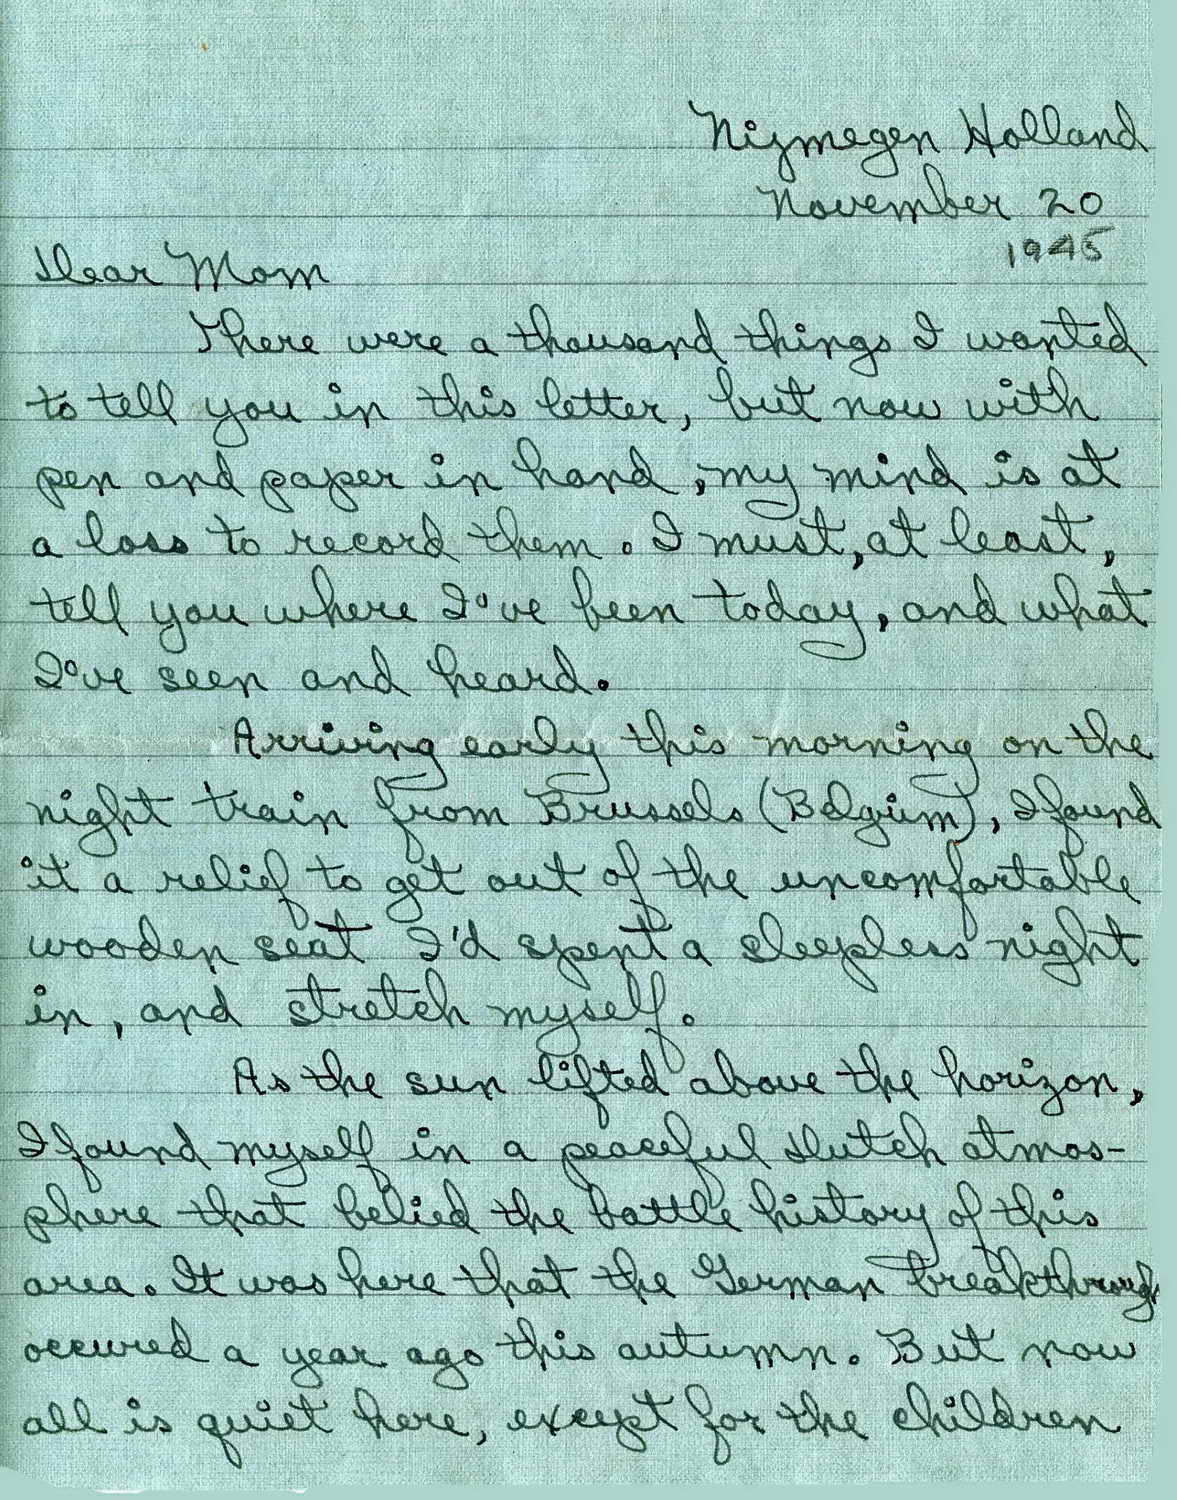 Nijmegen Holland
November 20
1945
Dear Mom
There were a thousand things I wanted
to tell you in this letter, but now with
pen and paper in hand, my mind is at
a loss to record them. I must, at least,
tell you where I've been today, and what
I've seen and heard.
Arriving early this morning on the
night train from Brussels (Belgium), I found
it a relief to get out of the uncomfortable
wooden seat I'd spent a sleepless night
in, and stretch myself.
As the sun lifted above the horizon,
I found myself in a peaceful Dutch atmos-
phere that belied the battle history of this
area. It was here that the German breakthrough
occured a year ago this autumn. But now
all is quiet here, except for the children